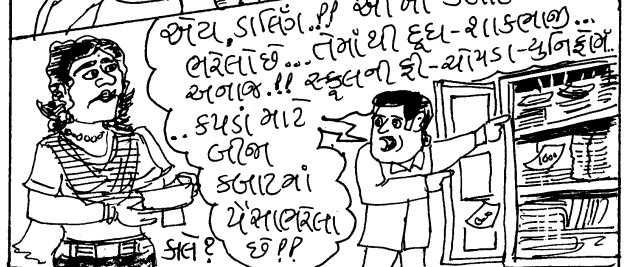 એય, ડાર્લિંગ.!! આ
ભરેલો છે... તેમાંથી દૂધ-શાકભાજી...
અનાજ.!! સ્કૂલની ફી-ચોપડા-યુનિફોર્મ..
..કપડાં માટે
બીજા
કબાટમાં
પૈસા ભરેલા
છે!!
કાલે?